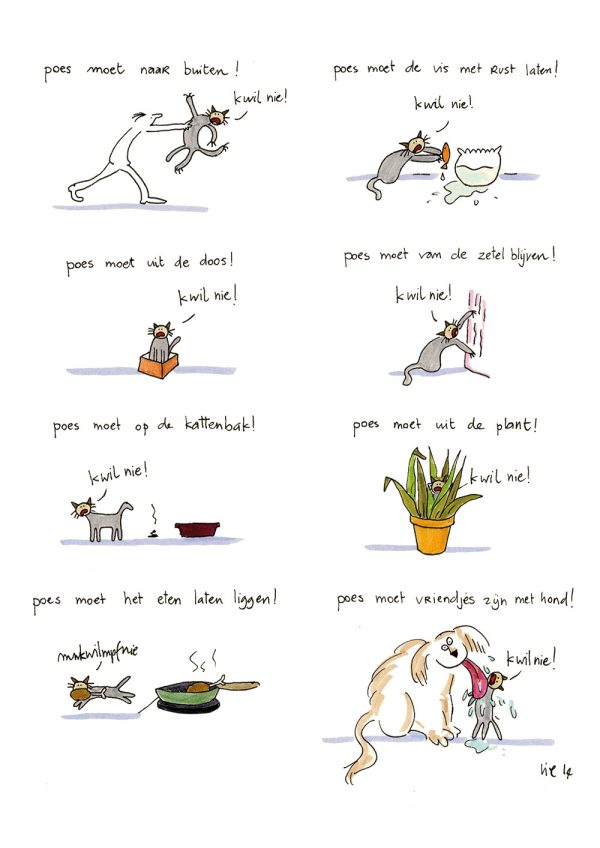 poes moet naar buiten!
kwil nie!
poes moet de vis met Rust laten!
kwil nie!
poes moet uit de doos!
kwil nie!
poes moet van de zetel blijven!
kwil nie!
poes moet op de kattenbak!
kwil nie!
poes moet uit de plant!
kwil nie!
poes moet het eten laten liggen!
poes moet vriendjes zijn met hond!
kwil nie!